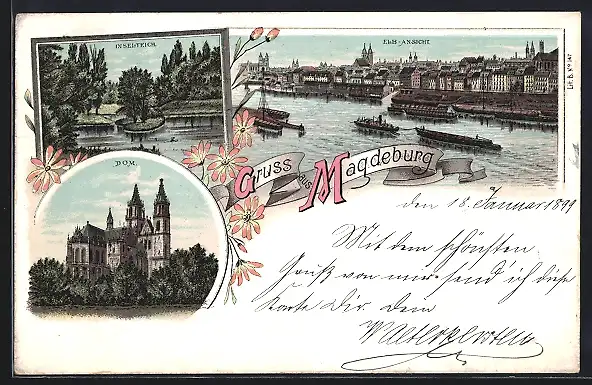 INSELTEICH.
ELB-ANSICHT.
DOM.
Gruss aus Magdeburg
Lith. B. No 147
den 18. Januar 1899
Mit dem schönsten
Gruß von mir send ich diese
Karte Dir dem